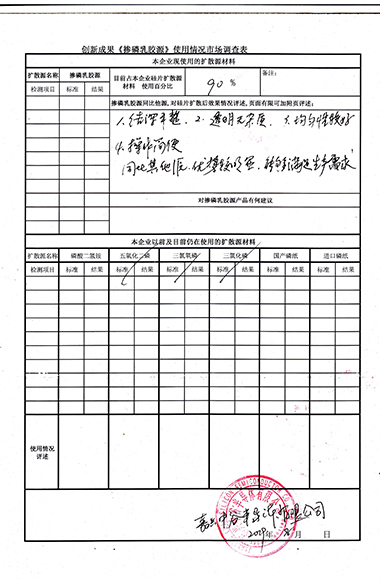 创新成果《掺磷乳胶源》使用情况市场调查表
本企业现使用的扩散源材料
扩散源名称 掺磷乳胶源 目前占本企业硅片扩散源材料 使用百分比 90% 备注:
检测项目 标准 结果
掺磷乳胶源同比他源,对硅片扩散后效果情况评述,页面有限可加附页评述:
1.结深平整、2.透明无杂质、3.均匀性较好
4.操作简便
同比其他源,优势较明显,能够满足生产需求
对掺磷乳胶源产品有何建议
本企业以前及目前仍在使用的扩散源材料
扩散源名称 磷酸二氢铵 五氧化二磷 三氯氧磷 三氯化磷 国产磷纸 进口磷纸
检测项目 标准 结果 标准 结果 标准 结果 标准 结果 标准 结果 标准 结果
使用情况
评述
SEMICONDUCTOR CO
半导体有限公司
半导体有限公司
年 月 日